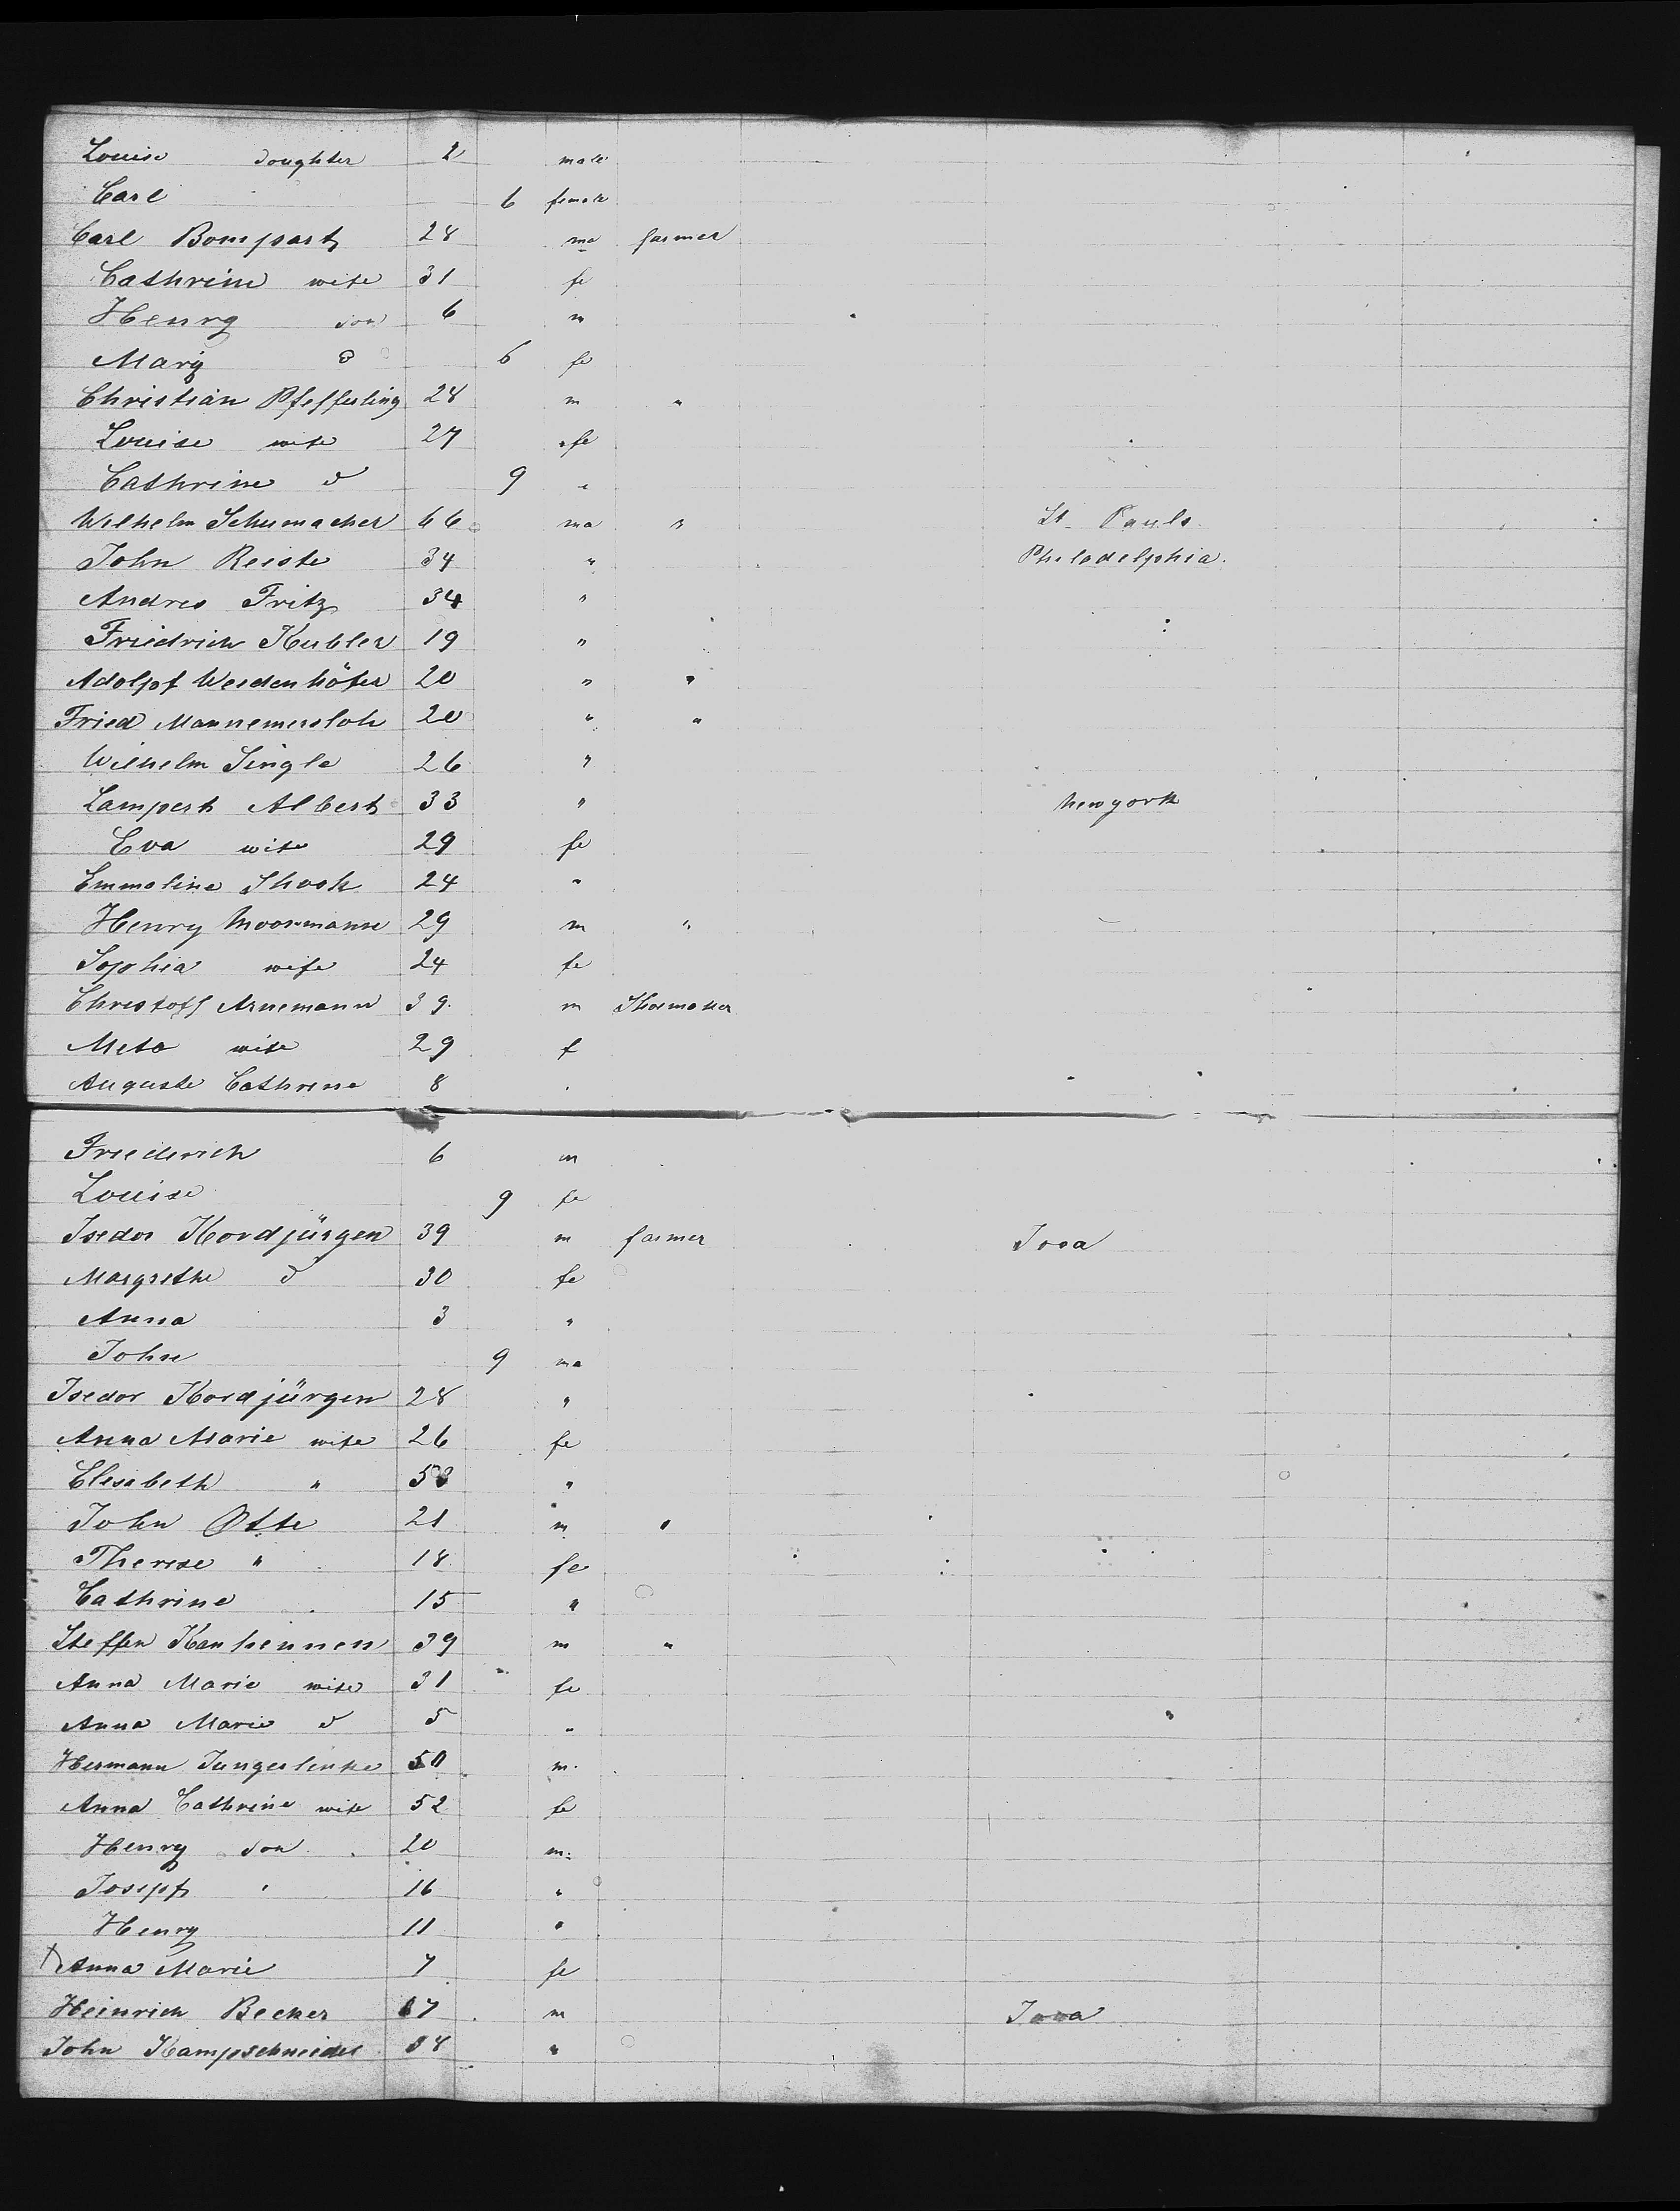 Louise doughter 2 male
Carl 6 female
Carl Bompart 28 ma farmer
Cathrine wife 31 fe
Henry son 6 m
Mary d 6 fe
Christian Pfefferling 28 m "
Louise wife 27 fe
Cathrine d 9 "
Wilhelm Schumacher 46 ma " St Pauls
John Reiste 34 " Philadelphia.
Andres Fritz 34 "
Friedrich Kubler 19 "
Adolpf Weidenhöfer 20 " "
Fried Mannemersloh 20 " "
Wilhelm Single 26 "
Lampert Albert 33 " Newyork
Eva wife 29 fe
Emmoline Shook 24 "
Henry Moormann 29 m "
Sophia wife 24 fe
Christoff Arnemann 39 m Shoemaker
Meta wife 29 f
Auguste Cathrine 8
Friederich 6 m
Louise 9 fe
Isedor Kordjürgen 39 m farmer Iova
Margrethe d 30 fe
Anna 3 "
John 9 ma
Isedor Kordjürgen 28 "
Anna Marie wife 26 fe
Elisabeth " "
John Otte 21 m "
Therese " 18 fe
Cathrine 15 "
Steffen 39 m "
Anna Marie wife 31 fe
Anna Marie d 5 "
Hermann 50 m.
Anna Cathrine wife 52 fe
Henry son 20 m.
Josepf " 16 "
Henry 11 "
Anna Marie 7 fe
Heinrich Becker m Iova
John Kampschneider "